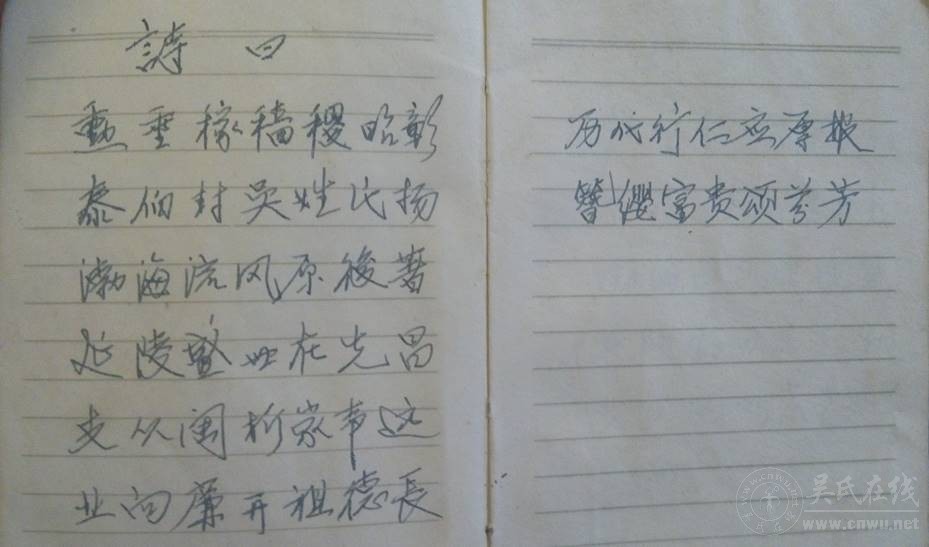 詩曰
勳垂稼穡稷昭彰
泰伯封吴姓氏扬
渤海流风原後著
延陵盛世在先昌
支从闽析家声远
业向廉开祖德長
历代行仁应厚报
簪缨富贵颂芬芳
吴氏在线
www.cnwu.net